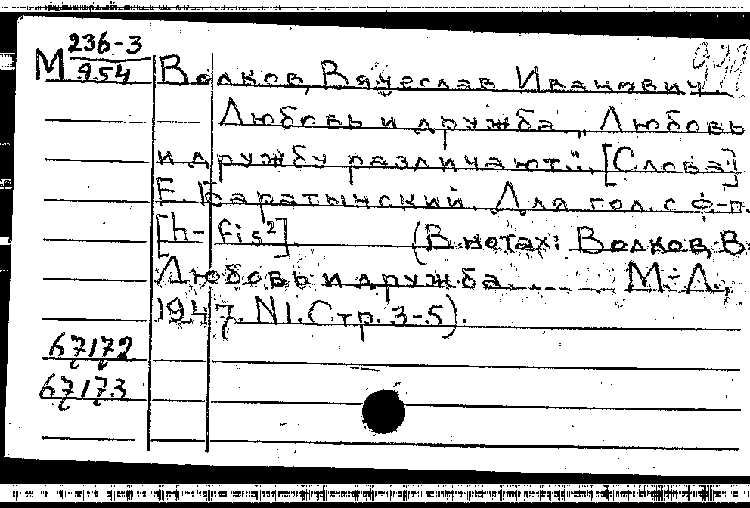 М 236-3
954
Волков, Вячеслав Иванович
Любовь и дружба. „Любовь
и дружбу различают..." [Слова]
Е. Баратынский. Для гол. с ф-п.
[h-fis²] (В нотах: Волков, В.
Любовь и дружба.... М.-Л.,
1947. N1. Стр. 3-5).
67172
67173